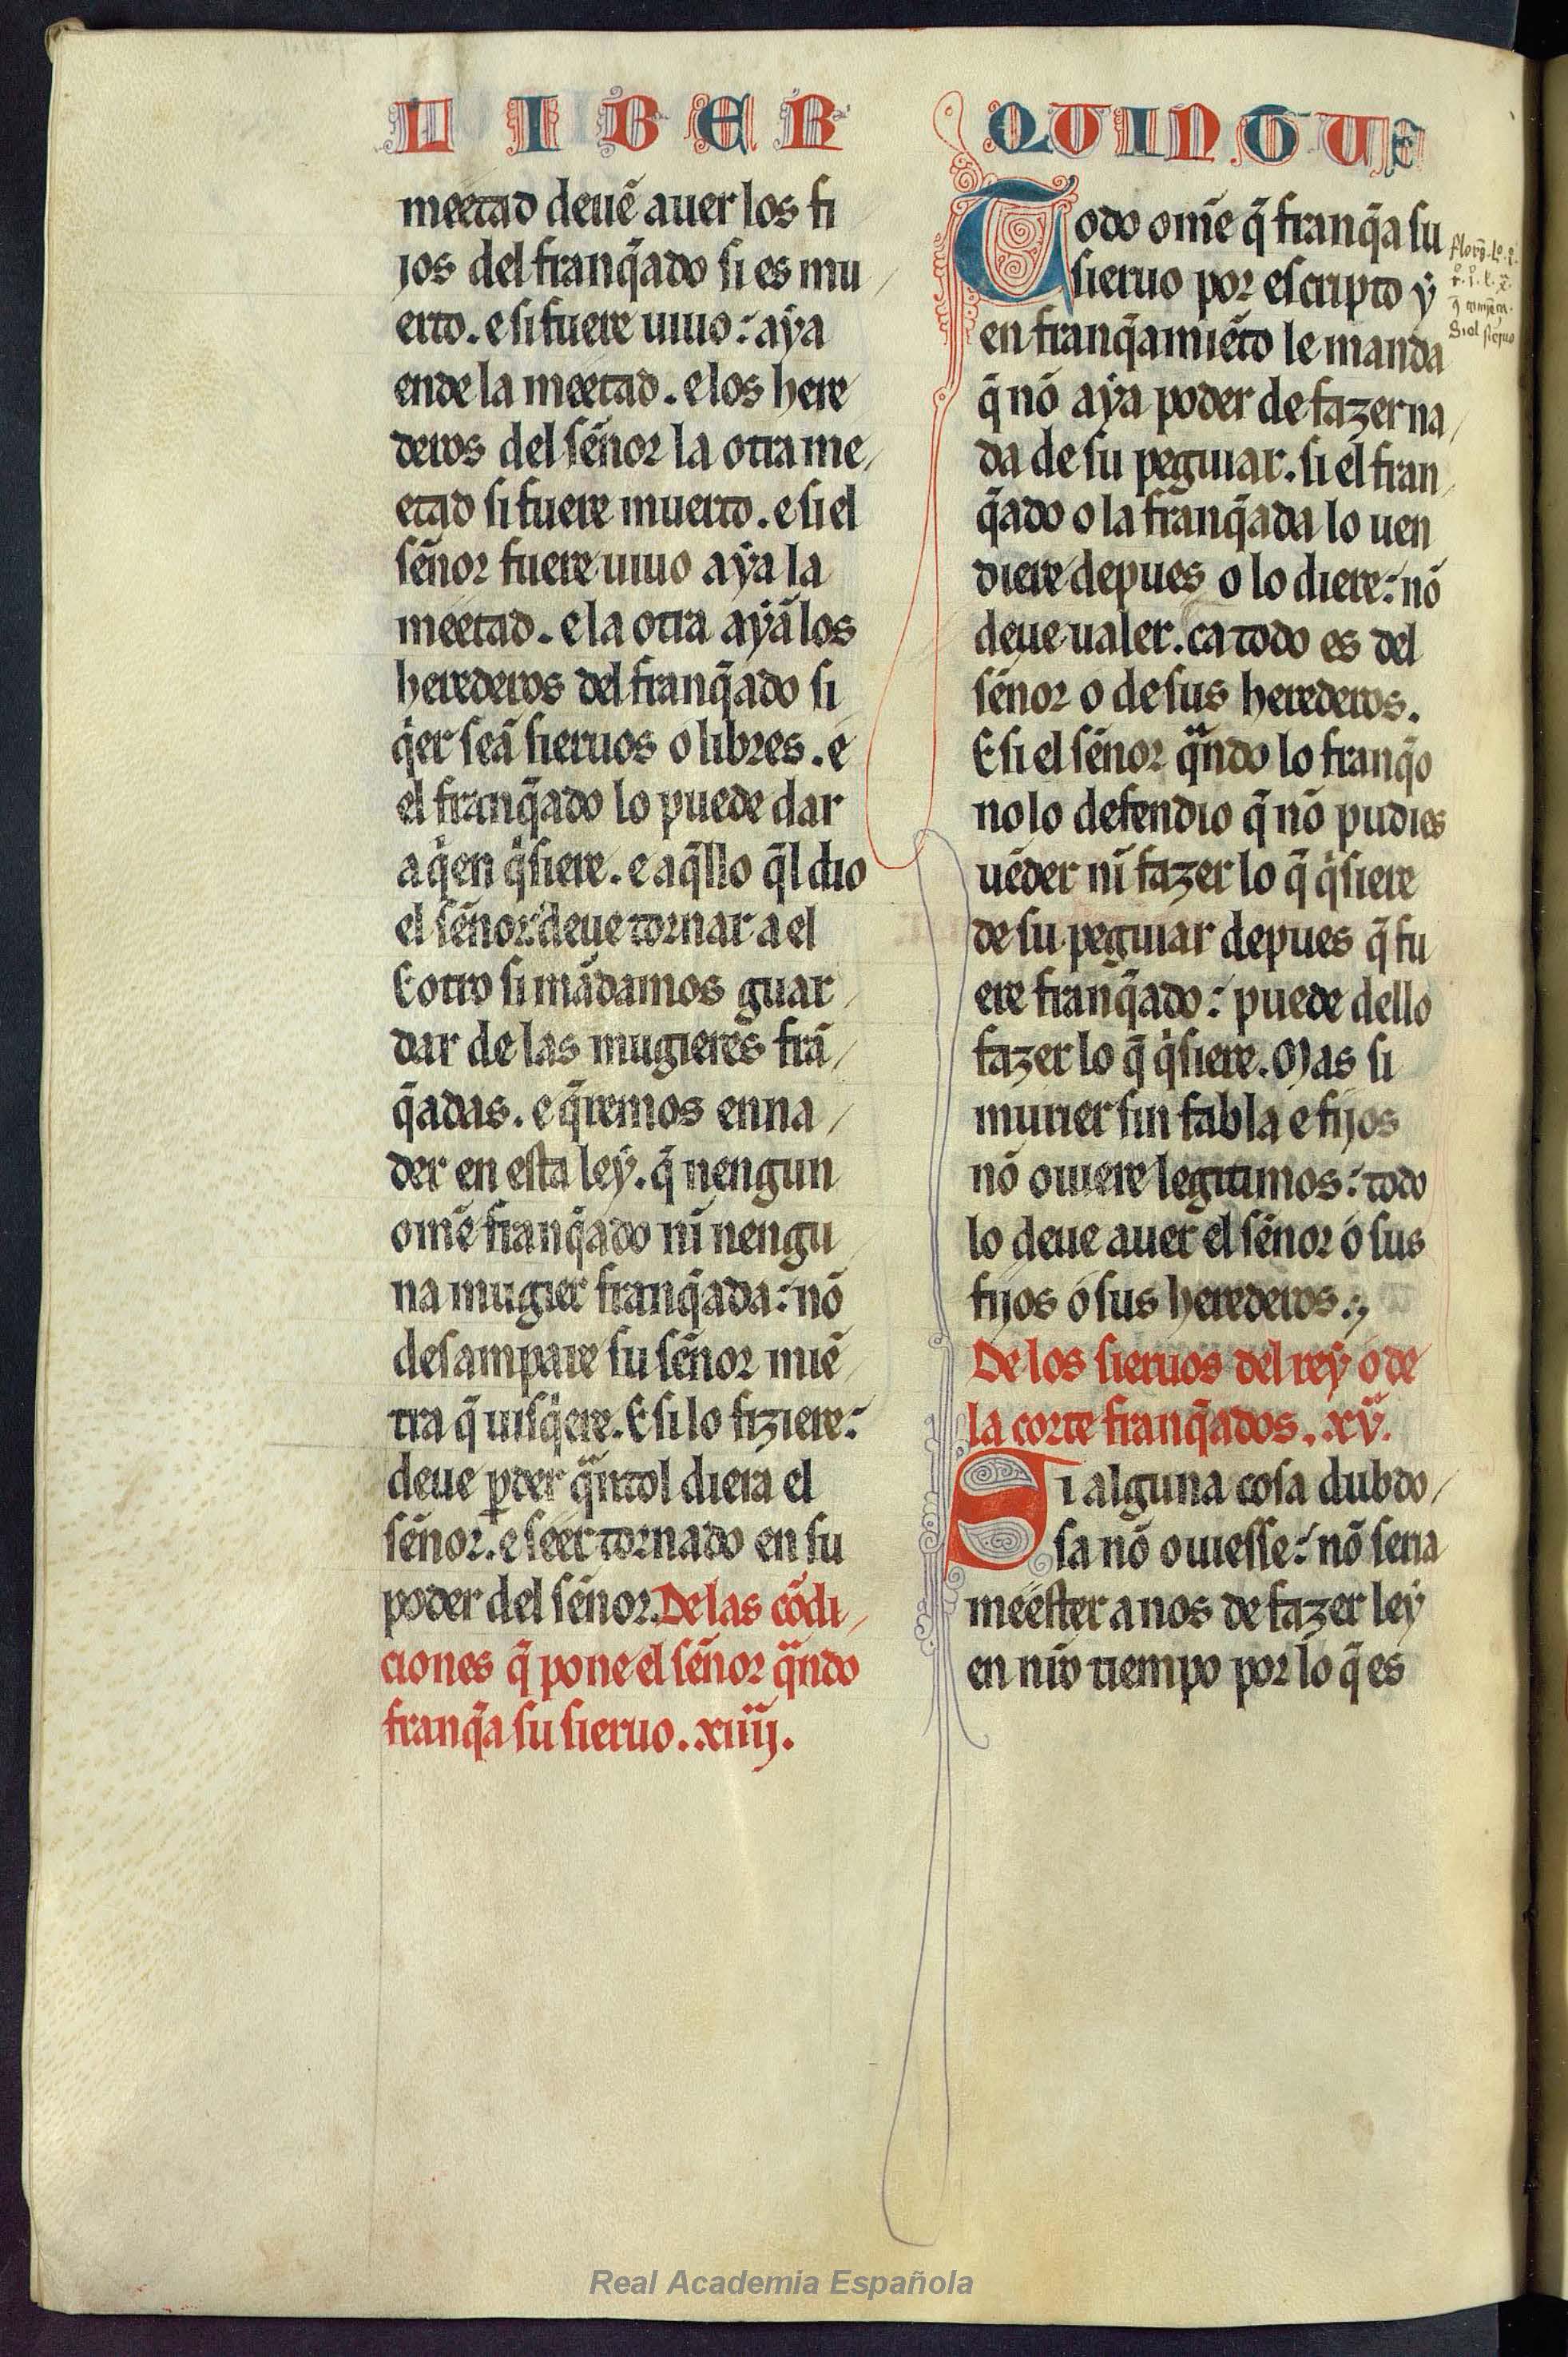 LIBER
meetad deuē auer los fi
jos del franq̄ado si es mu
erto. e si fuere uiuo: aẏa
ende la meetad. e los here
deros del señor la otra me
etad si fuere muerto. e si el
señor fuere uiuo aẏa la
meetad. e la otra aẏā los
herederos del franq̄ado si
q̇er seā sieruos o libres. e
el franq̄ado lo puede dar
a q̇en q̇siere. e aq̄llo q̄l dio
el señor: deue tornar a el
E otro si mādamos guar
dar de las mugieres frā
q̄adas. e q̄remos enna
der en esta leẏ. q̄ nengun
omē franq̄ado nī nengu
na mugier franq̄ada: nō
desampare su señor miē
tra q̄ uisq̇ere. E si lo fiziere:
deue ꝑder q̄ntol diera el
señor. e seer tornado en su
poder del señor. De las cōdi
ciones q̄ pone el señor q̄ndo
franq̄a su sieruo. xiiij.
QUINTUS
Todo omē q̄ franq̄a su
sieruo por escripto ẏ
en franq̄amiēto le manda
q̄ nō aẏa poder de fazer na
da de su peguiar. si el fran
q̄ado o la franq̄ada lo uen
diere depues o lo diere: nō
deue ualer. ca todo es del
señor o de sus herederos.
E si el señor q̄ndo lo franq̇o
no lo defendio q̄ nō pudies
uēder nī fazer lo q̄ q̇siere
de su peguiar depues q̄ fu
ere franq̄ado: puede dello
fazer lo q̄ q̇siere. Mas si
murier sin fabla e fijos
nō ouiere legitimos: todo
lo deue auer el señor o sus
fijos o sus herederos.
De los sieruos del reẏ o de
la corte franq̄ados. xv.
Si alguna cosa dubdo
sa nō ouiesse: nō seria
meester a nos de fazer leẏ
en nīo tiempo por lo q̄ es
Real Academia Española